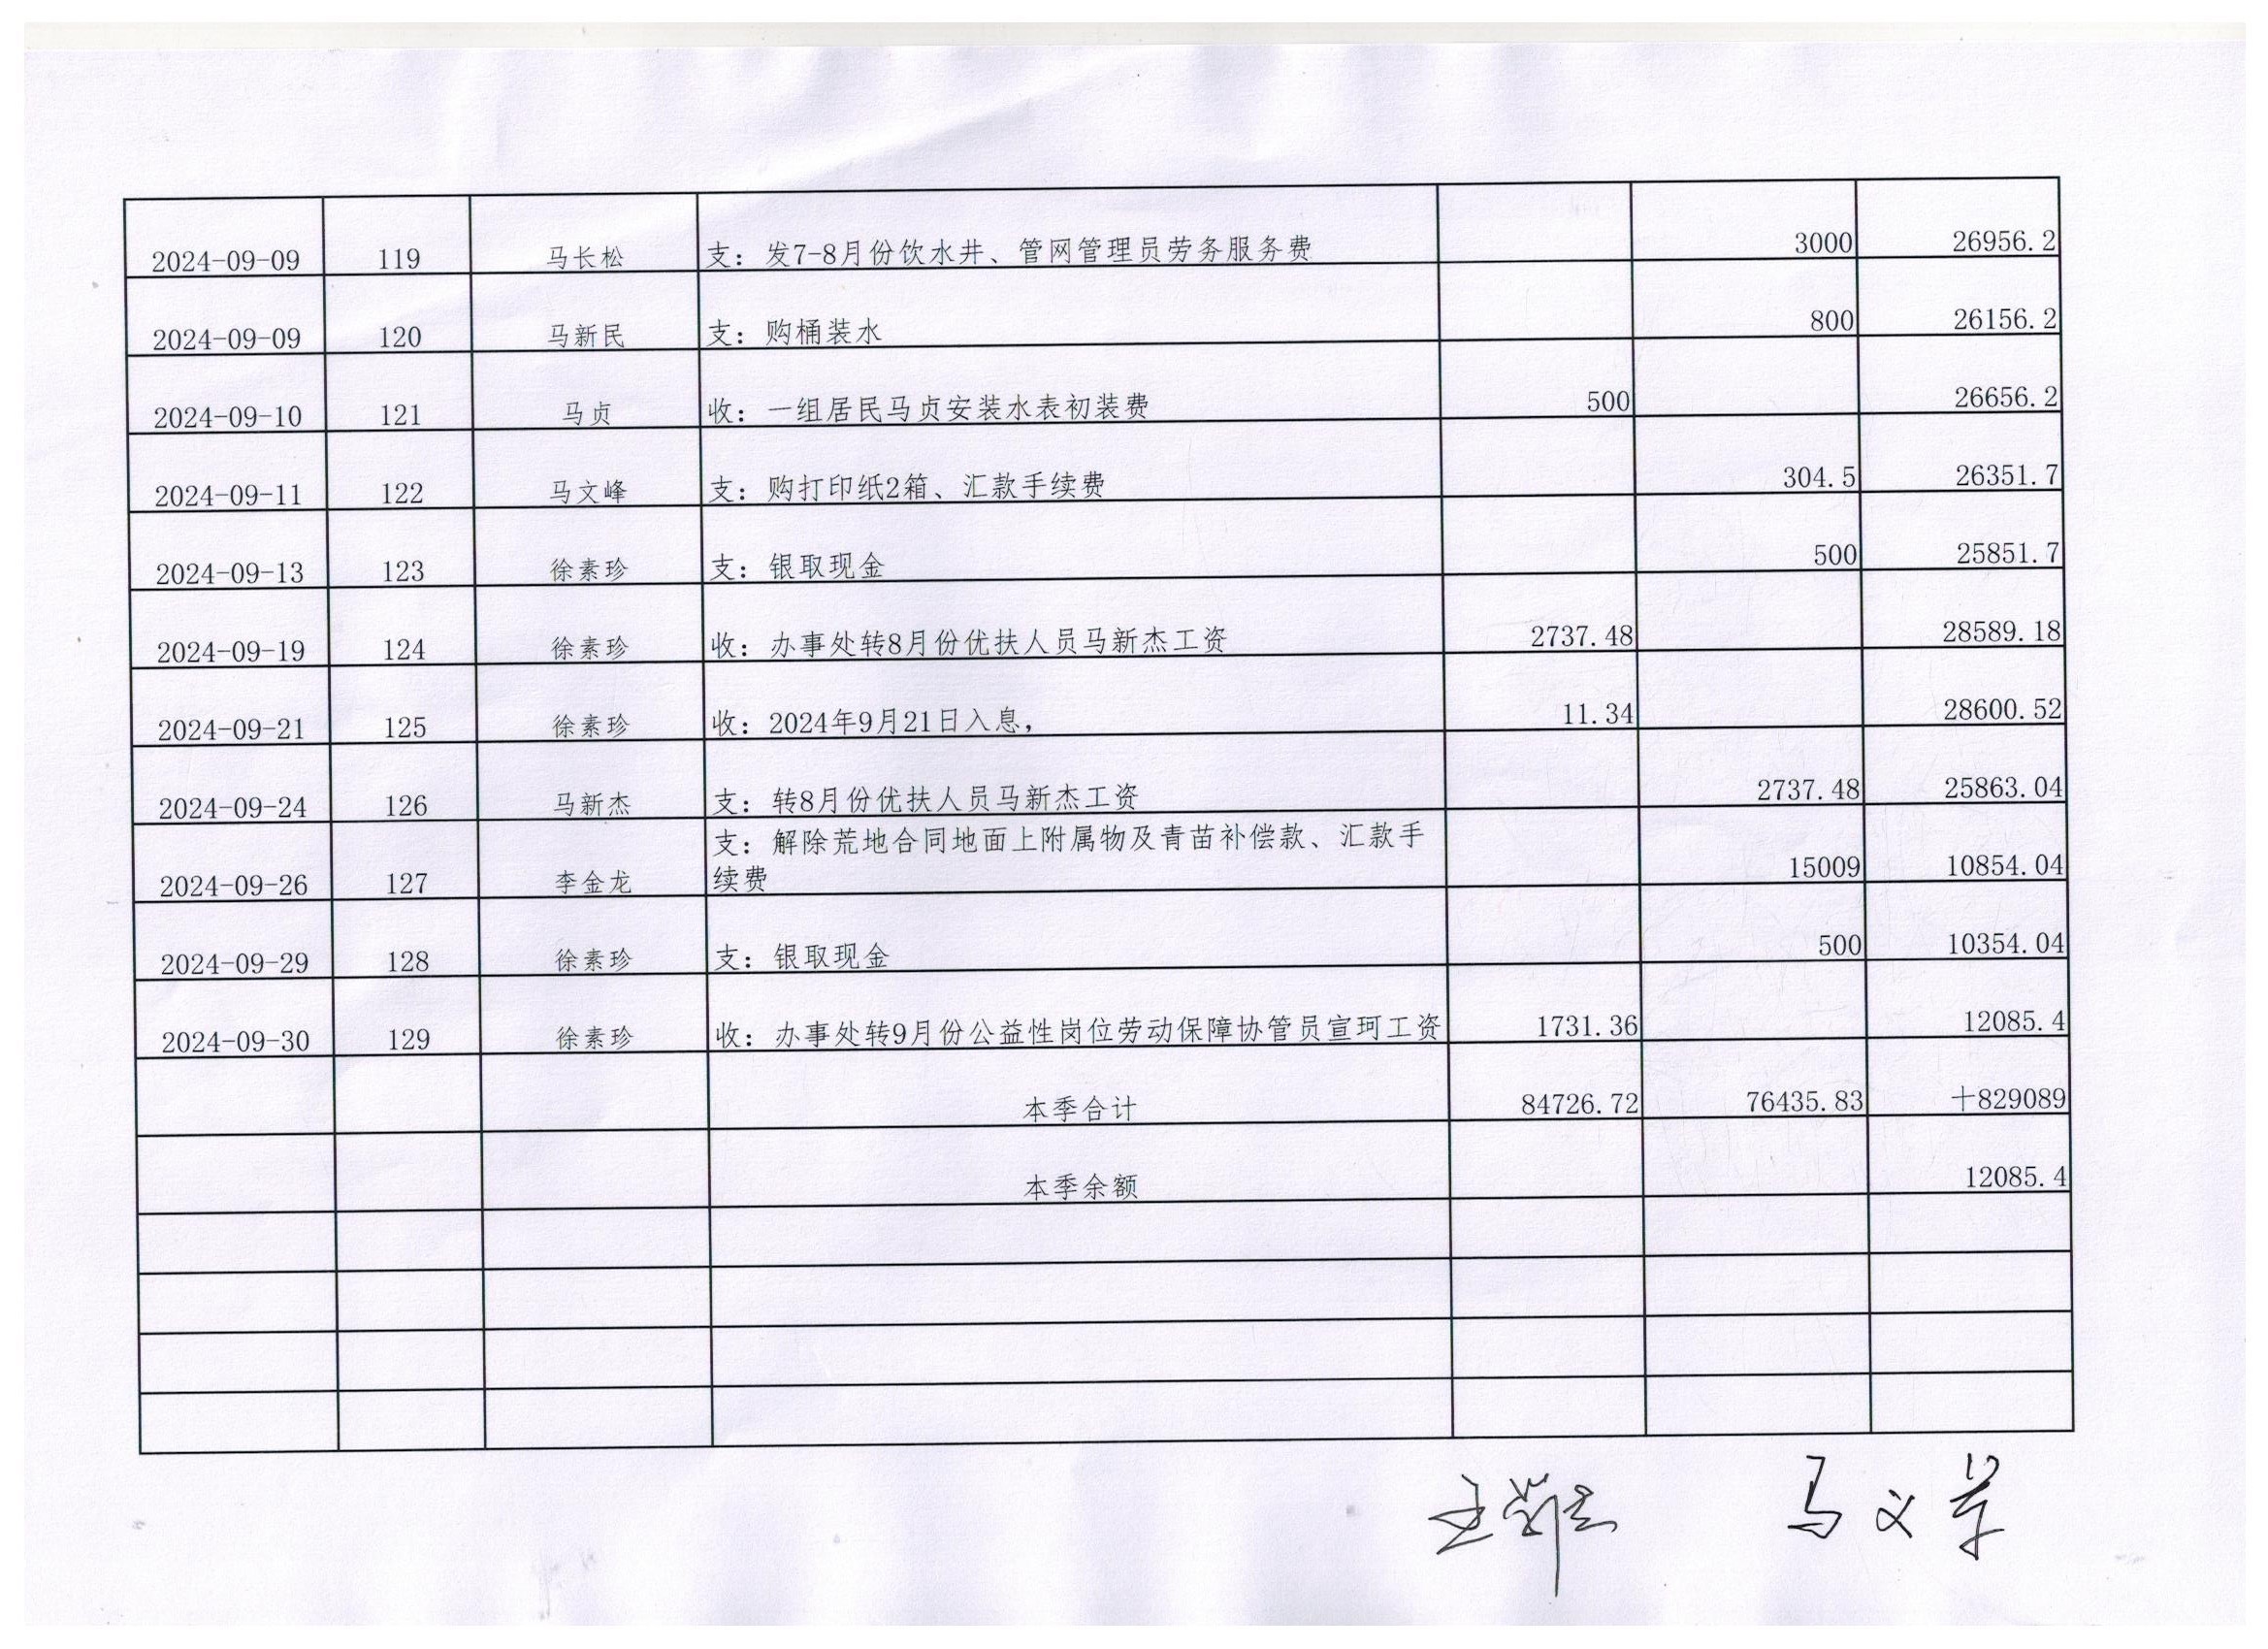 2024-09-09 119 马长松 支：发7-8月份饮水井、管网管理员劳务服务费 3000 26956.2
2024-09-09 120 马新民 支：购桶装水 800 26156.2
2024-09-10 121 马贞 收：一组居民马贞安装水表初装费 500 26656.2
2024-09-11 122 马文峰 支：购打印纸2箱、汇款手续费 304.5 26351.7
2024-09-13 123 徐素珍 支：银取现金 500 25851.7
2024-09-19 124 徐素珍 收：办事处转8月份优扶人员马新杰工资 2737.48 28589.18
2024-09-21 125 徐素珍 收：2024年9月21日入息， 11.34 28600.52
2024-09-24 126 马新杰 支：转8月份优扶人员马新杰工资 2737.48 25863.04
支：解除荒地合同地面上附属物及青苗补偿款、汇款手
2024-09-26 127 李金龙 续费 15009 10854.04
2024-09-29 128 徐素珍 支：银取现金 500 10354.04
2024-09-30 129 徐素珍 收：办事处转9月份公益性岗位劳动保障协管员宣珂工资 1731.36 12085.4
本季合计 84726.72 76435.83 十829089
本季余额 12085.4